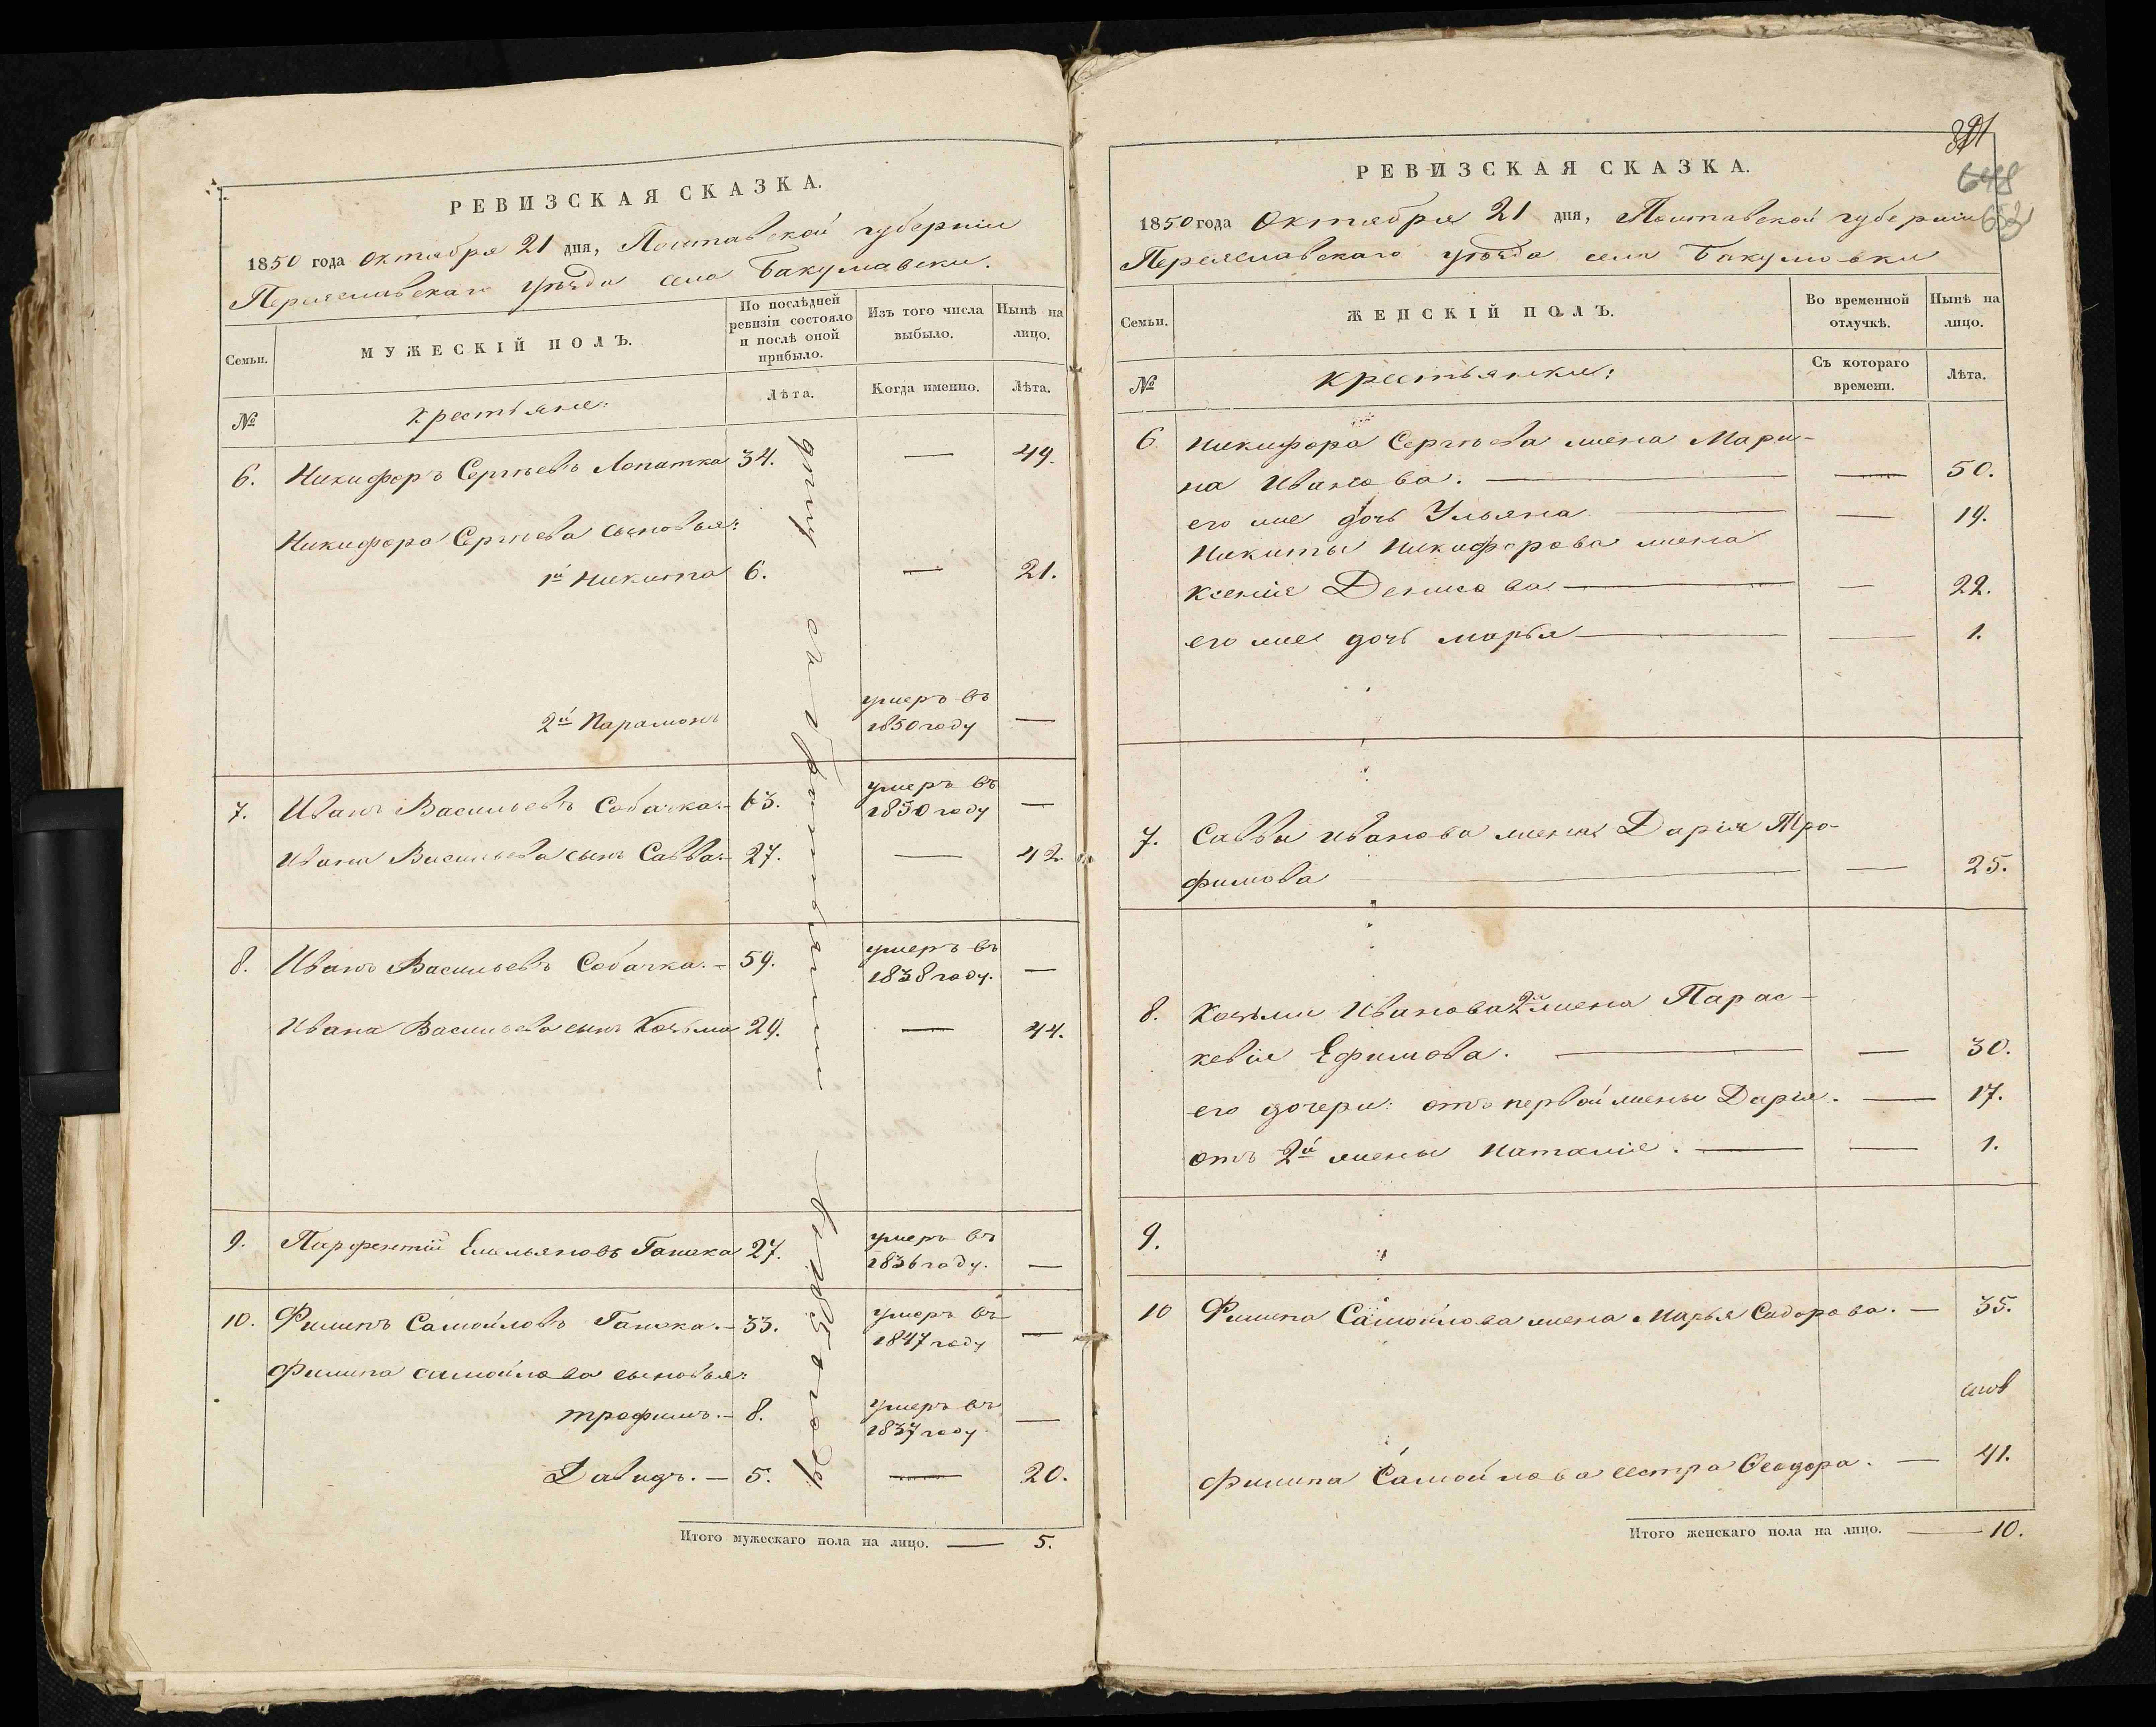 РЕВИЗСКАЯ СКАЗКА.
1850 года Октября 21 дня, Полтавской губерніи
Переяславскаго уѣзда села Бакумовки.
Семьи.
МУЖЕСКІЙ ПОЛЪ.
По послѣдней
ревизіи состояло
и послѣ оной
прибыло.
Изъ того числа
выбыло.
Нынѣ на
лицо.
№
Крестьяне:
Лѣта.
Когда именно.
Лѣта.
6. Никифоръ Сергѣевъ Лопатка 34. — 49.
Никифора Сергѣева сыновья:
1й Никита 6. — 21.
2й Парамонъ умеръ въ
1850 году —
7. Иванъ Васильевъ Собачка. – 63. умеръ въ
1850 году —
Ивана Васильева сынъ Савва. – 27. — 42.
8. Иванъ Васильевъ Собачка. – 59. умеръ въ
1838 году. —
Ивана Васильева сынъ Козьма 29. — 44.
9. Парфентій Емельяновъ Ганжа 27. умеръ въ
1836 году. —
10. Филипъ Самойловъ Ганжа. – 33. умеръ въ
1847 году —
Филипа Самойлова сыновья:
Трофимъ. – 8. умеръ въ
1837 году. —
Давидъ. – 5. — 20.
Итого мужескаго пола на лицо. — 5.
году
391
648
652
РЕВИЗСКАЯ СКАЗКА.
1850 года Октября 21 дня, Полтавской губерніи
Переяславскаго уѣзда села Бакумовки
Семьи.
ЖЕНСКІЙ ПОЛЪ.
Во временной
отлучкѣ.
Нынѣ на
лицо.
№
Крестьянки:
Съ котораго
времени.
Лѣта.
6. Никифора Сергѣева жена Мари-
на Иванова. — — 50.
его же дочь Ульяна — — 19.
Никиты Никифорова жена
Ксенія Денисова — — 22.
его же дочь Марья — — 1.
7. Саввы Иванова жена Дарія Тро-
фимова — — 25.
8. Козьмы Иванова 2я жена Парас-
кевія Ефимова. — — 30.
его дочери: отъ первой жены Дарья. — 17.
отъ 2й жены Наталія. — — 1.
9.
10 Филипа Самойлова жена Марья Сидорова. — 35.
Филипа Самойлова сестра Ѳеодора. — 41.
Итого женскаго пола на лицо. — 10.